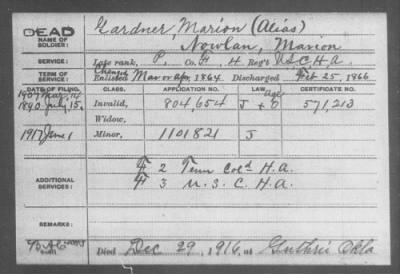 DEAD
NAME OF SOLDIER:
Gardner, Marion (Alias)
Nowlan, Marion
SERVICE:
Late rank, P, Co. F, H, Reg't U.S.C.H.A.
TERM OF SERVICE:
Enlisted Mar or Apr, 1864 Discharged Feb 25, 1866
DATE OF FILING. CLASS. APPLICATION NO. LAW. CERTIFICATE NO.
1907 Mar. 14 Age
1890 July 15. Invalid, 804,654 J + O 571,213
Widow,
1917 June 1 Minor, 1101821 J
ADDITIONAL SERVICES:
F 2 Tenn Cold H.A.
F 3 U.S.C.H.A.
REMARKS:
Died Dec 29, 1916, at Guthrie Okla